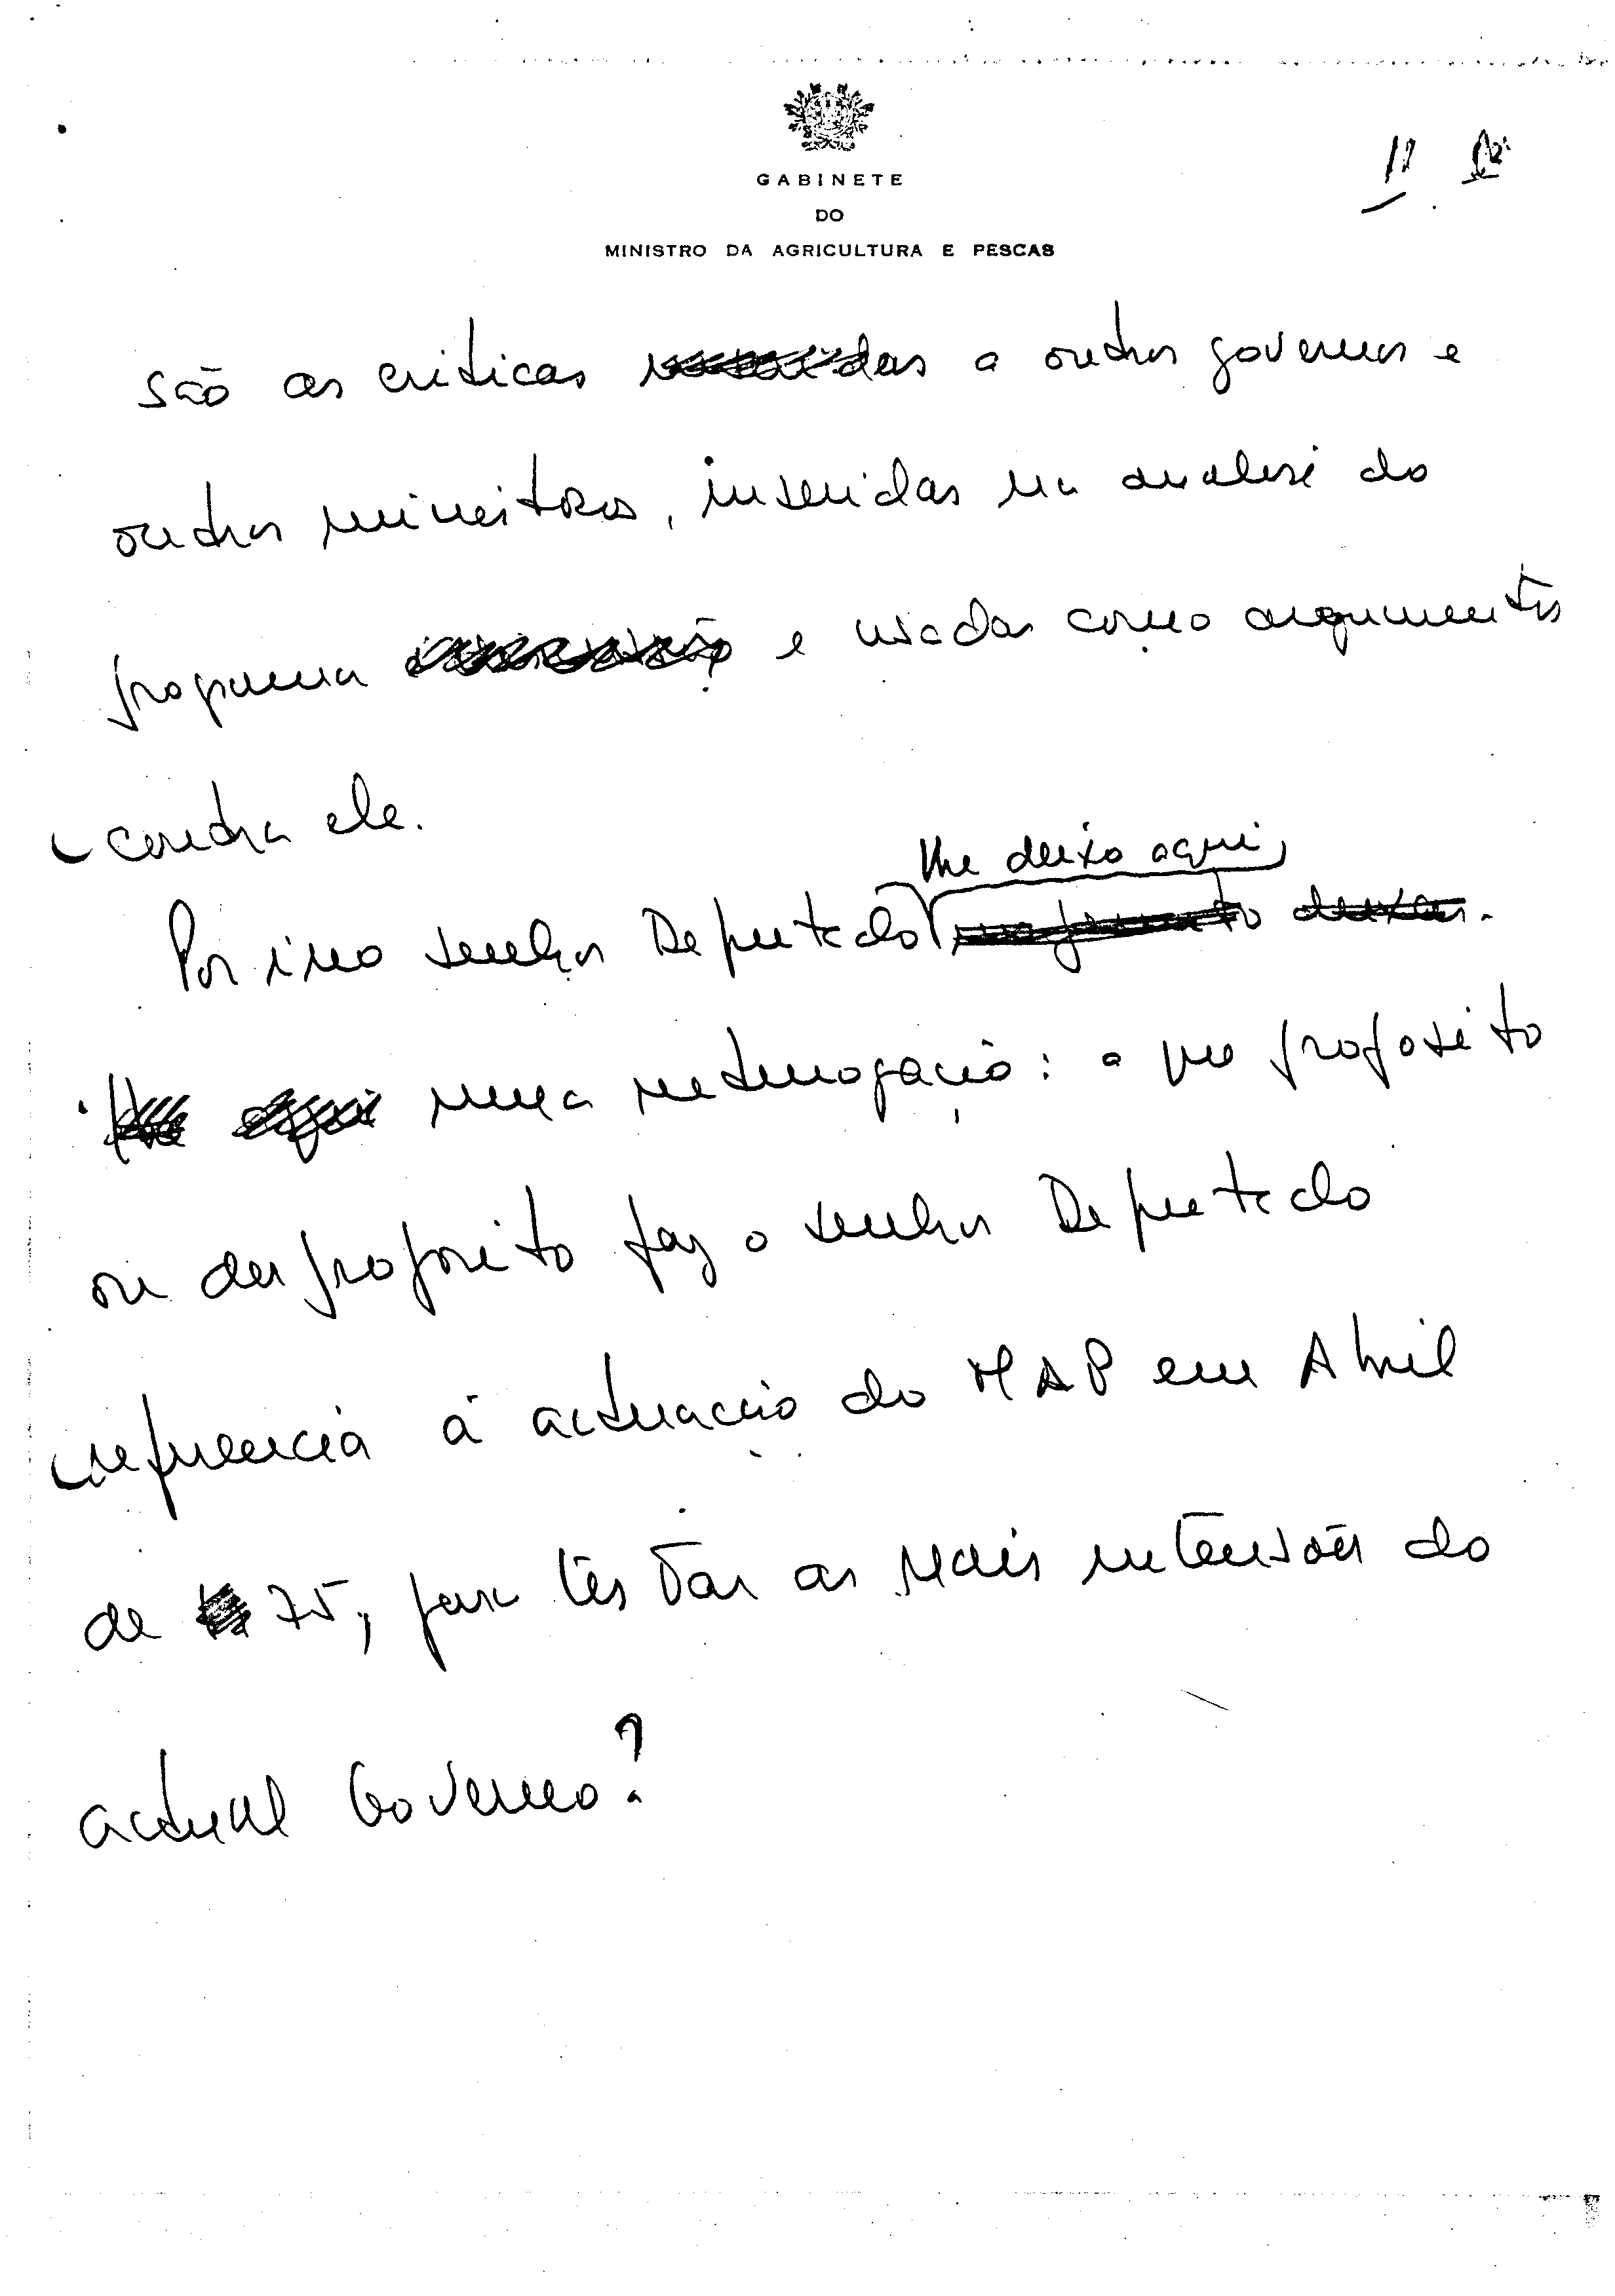 GABINETE
DO
MINISTRO DA AGRICULTURA E PESCAS
são as criticas a outros governos e
outros ministros, inseridas na analise do
programa e usadas como argumentos
contra ele.
lhe deixo aqui,
Por isso senhor Deputado
uma interrogação: a que proposito
ou desproposito faz o senhor Deputado
referencia á actuação do MAP em Abril
de 75, para testar as más intensões do
actual Governo?